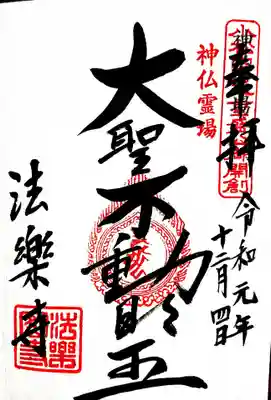 奉拝
神仏霊場
令和元年
十二月四日
大聖不動明王
法樂寺
法樂寺